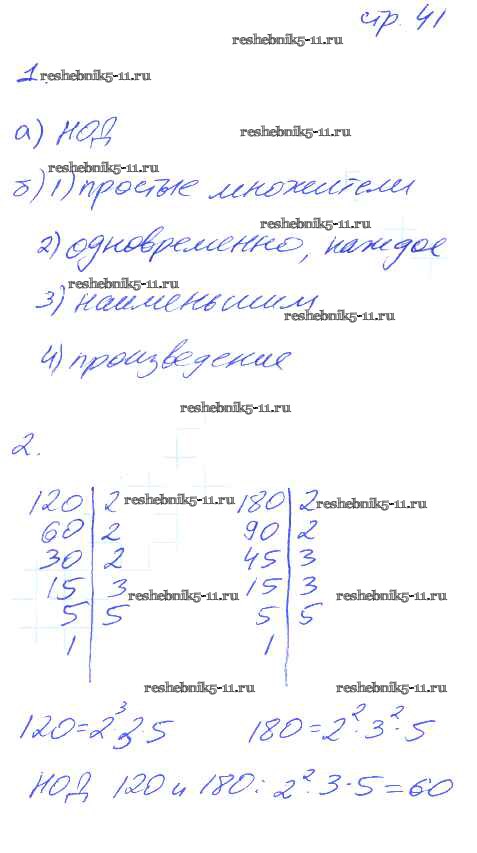 стр. 41
reshebnik5-11.ru
1. reshebnik5-11.ru
а) НОД reshebnik5-11.ru
reshebnik5-11.ru
б) 1) простые множители
reshebnik5-11.ru
2) одновременно, каждое
reshebnik5-11.ru
3) наименьшим
reshebnik5-11.ru
4) произведение
reshebnik5-11.ru
2.
120 | 2 reshebnik5-11.ru 180 | 2 reshebnik5-11.ru
60 | 2 90 | 2
30 | 2 45 | 3
15 | 3 reshebnik5-11.ru 15 | 3 reshebnik5-11.ru
5 | 5 5 | 5
1 | 1 |
reshebnik5-11.ru reshebnik5-11.ru
120 = 2³·3·5 180 = 2²·3²·5
НОД 120 и 180: 2²·3·5 = 60